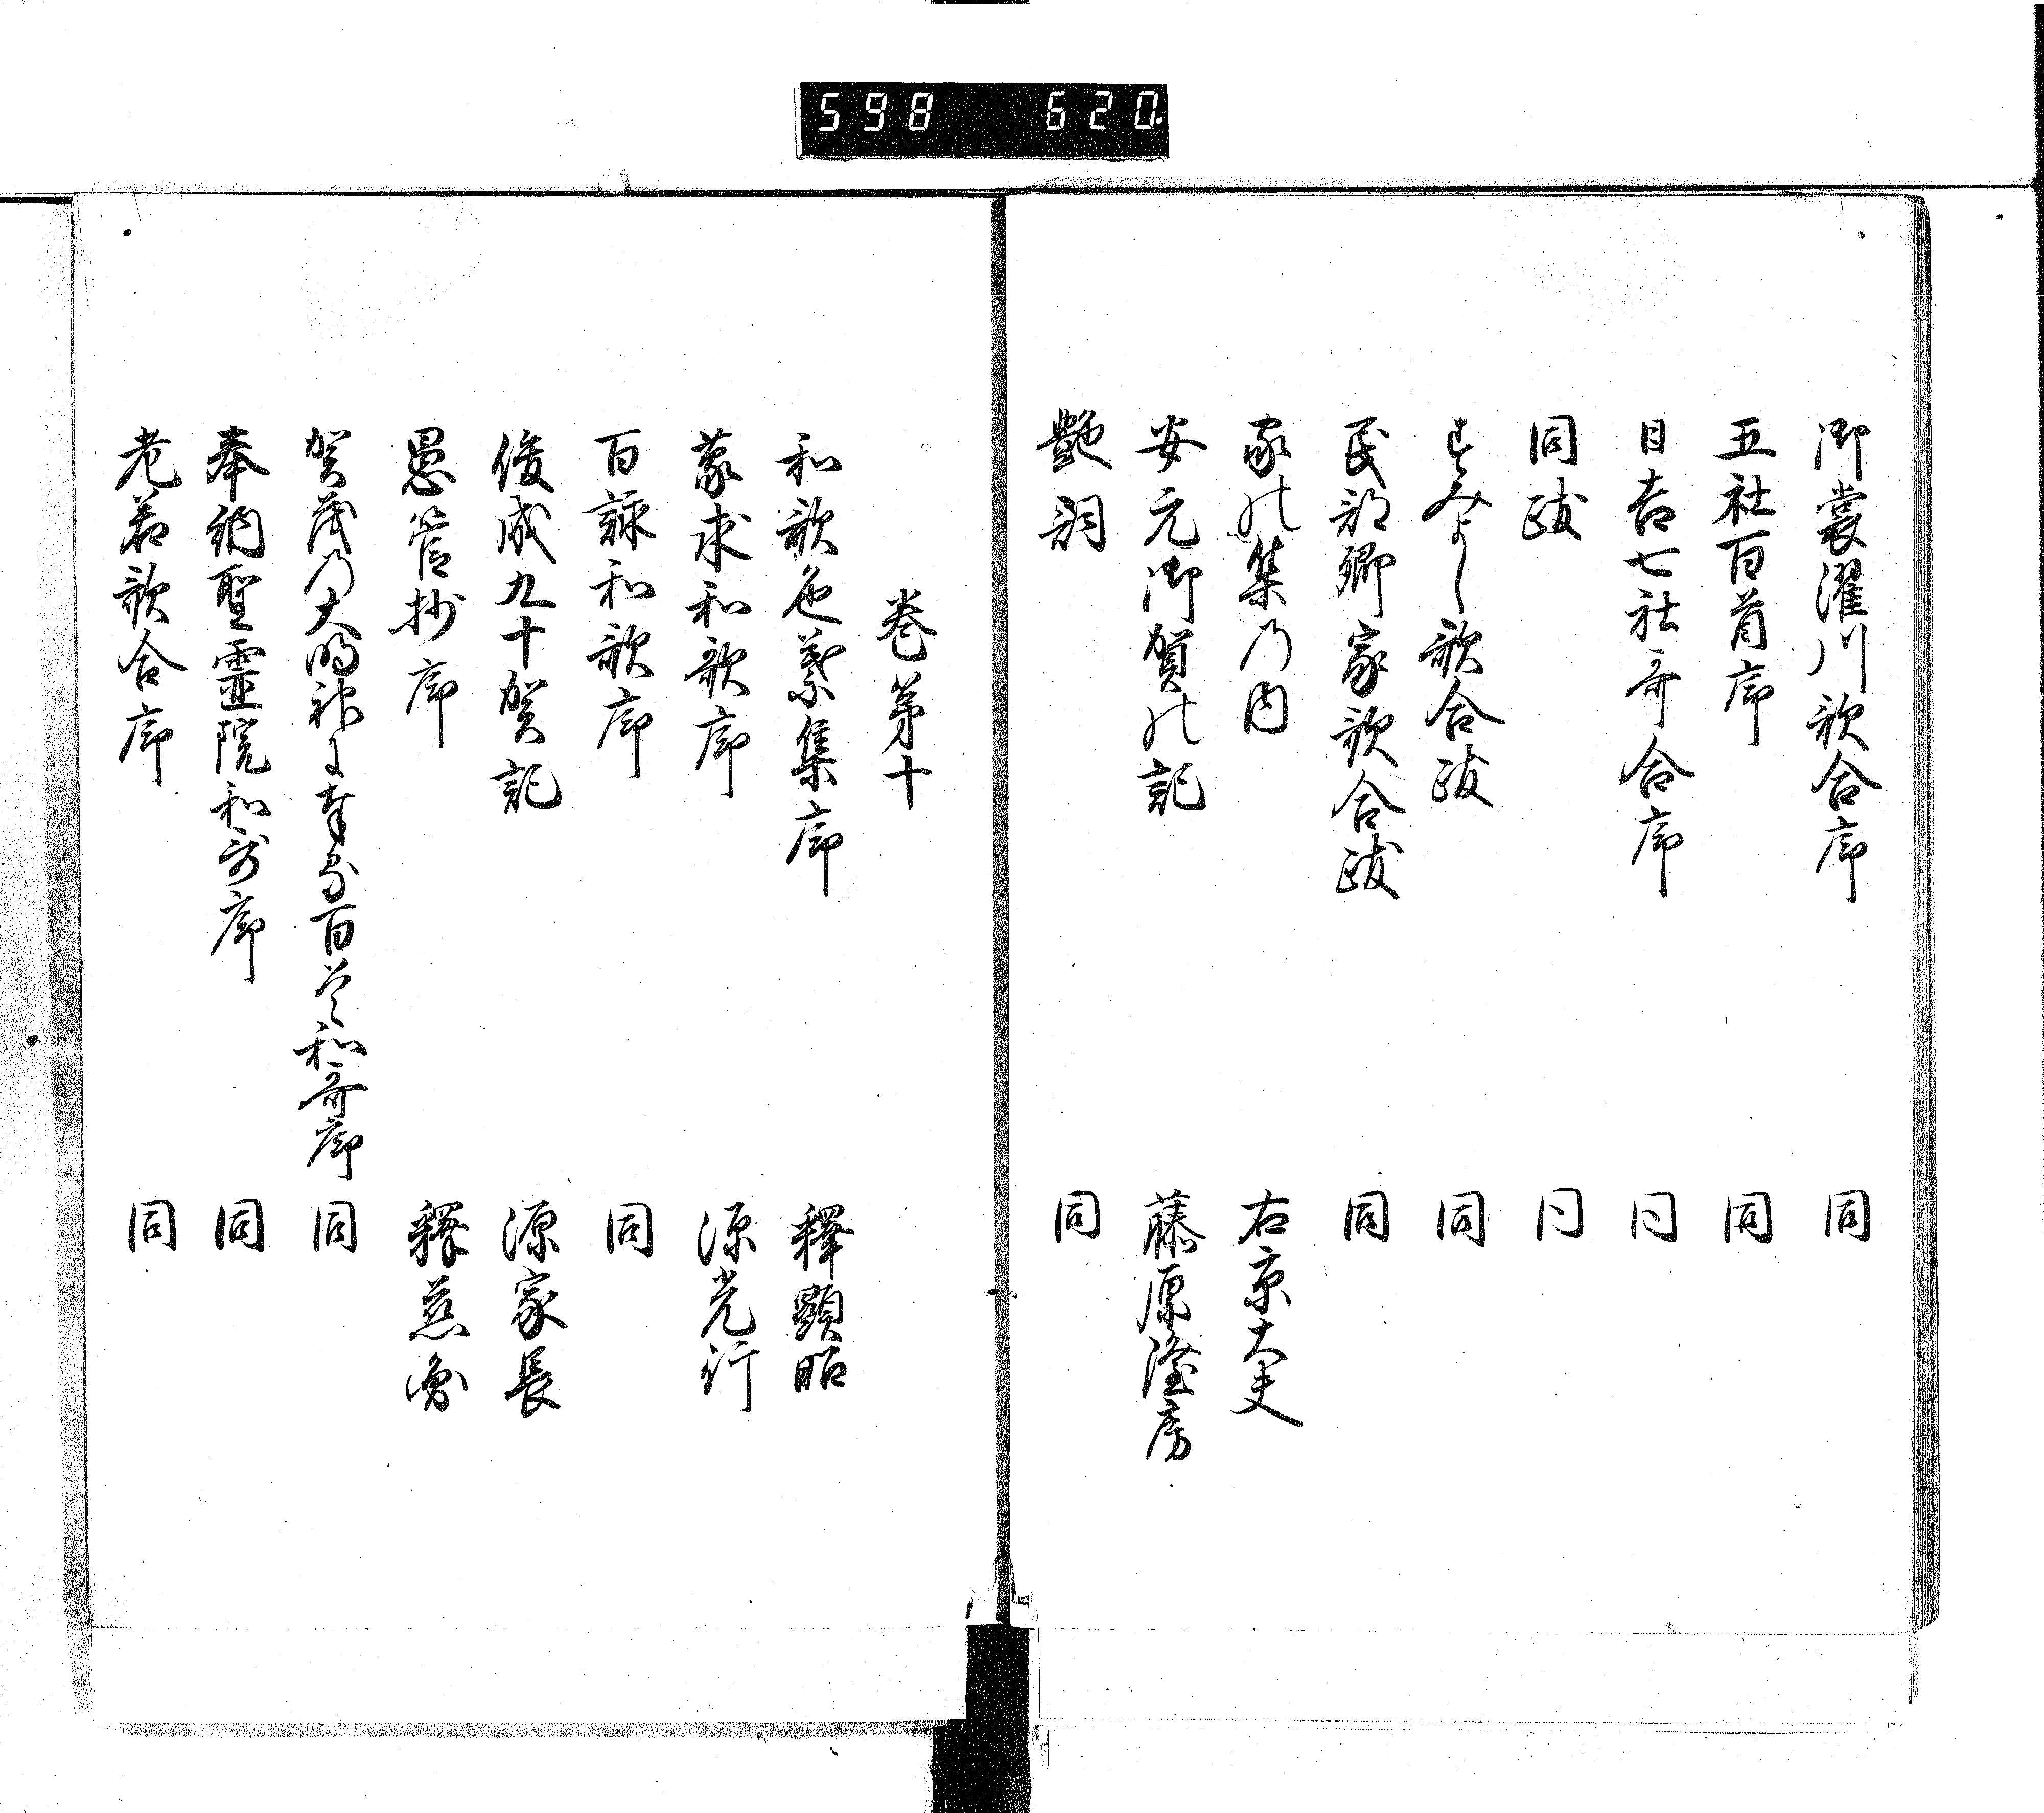 598 620.
御裳濯川歌合序 同
五社百首序 同
日吉七社哥合序 同
同跋 同
すみよし歌合跋 同
民部卿家歌合跋 同
家の集乃内 右京大夫
安元御賀の記 藤原隆房
艶詞 同
巻第十
和歌色葉集序 釋顕昭
蒙求和歌序 源光行
百詠和歌序 同
俊成九十賀記 源家長
愚管抄序 釋慈圓
賀茂乃大明神に奉る百首和哥序 同
奉納聖靈院和哥序 同
老若歌合序 同